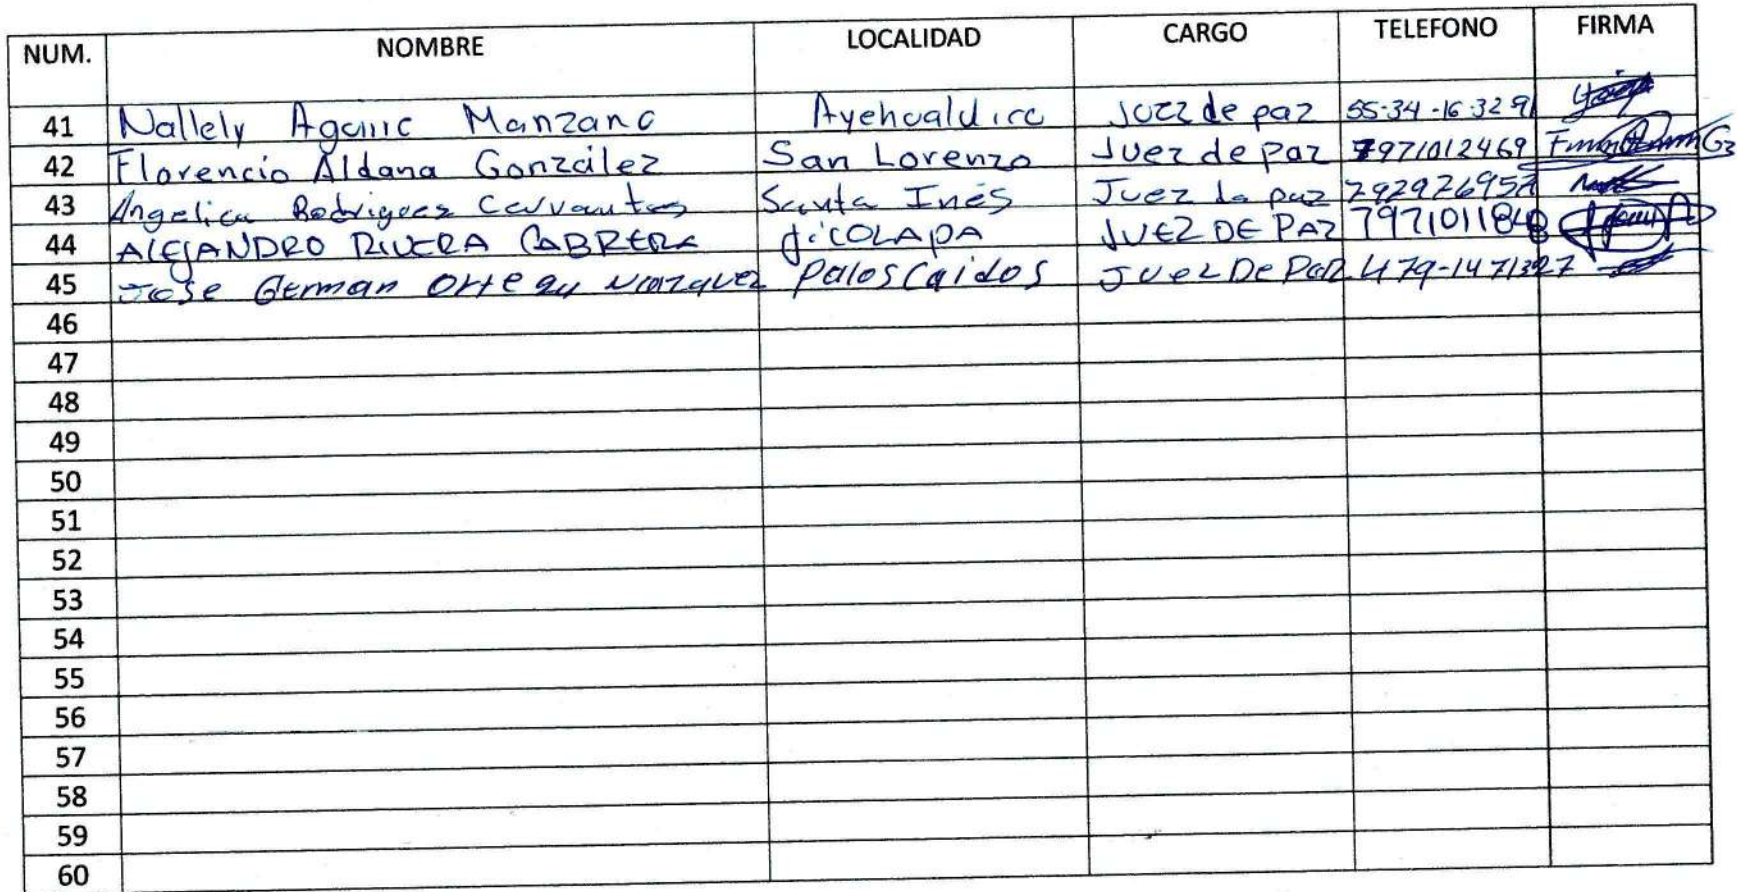 NUM. NOMBRE LOCALIDAD CARGO TELEFONO FIRMA
41 Nallely Manzano Juez de paz 55-34-16-32 91
42 Florencio Aldana González San Lorenzo Juez de paz 7971012469
43 Angelica Rodriguez Cervantes Santa Inés Juez de paz
44 ALEJANDRO RIVERA CABRERA JICOLAPA JUEZ DE PAZ
45 Jose German Palos Caidos Juez De Paz
46
47
48
49
50
51
52
53
54
55
56
57
58
59
60